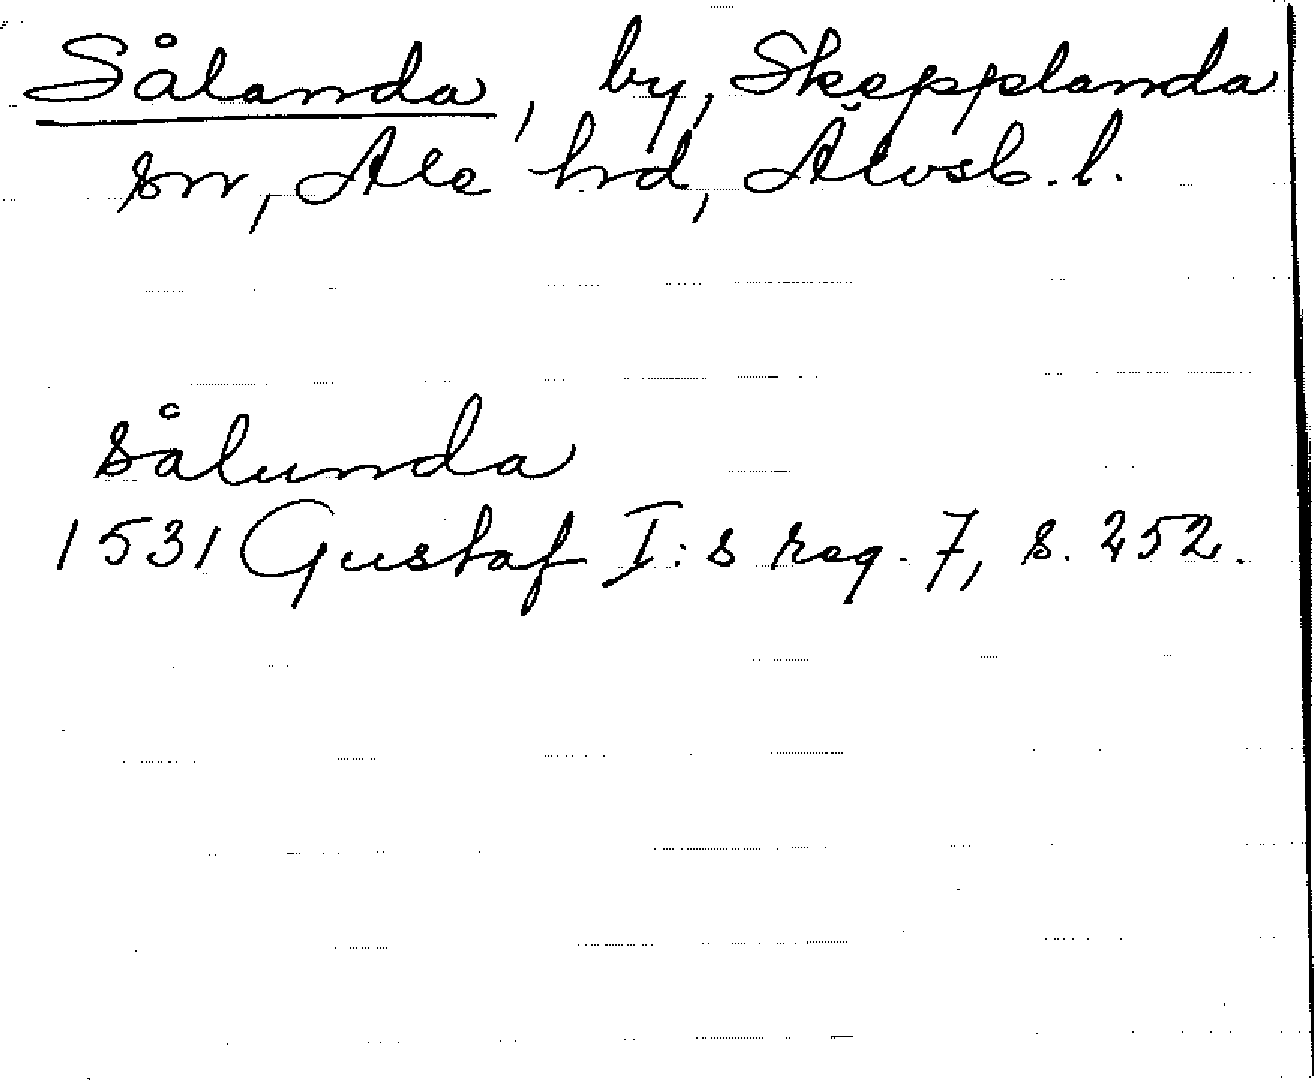 Sålanda, by, Skepplanda
sn, Ale hrd, Älvsb. l.
sålunda
1531 Gustaf I:s reg. 7, s. 252.